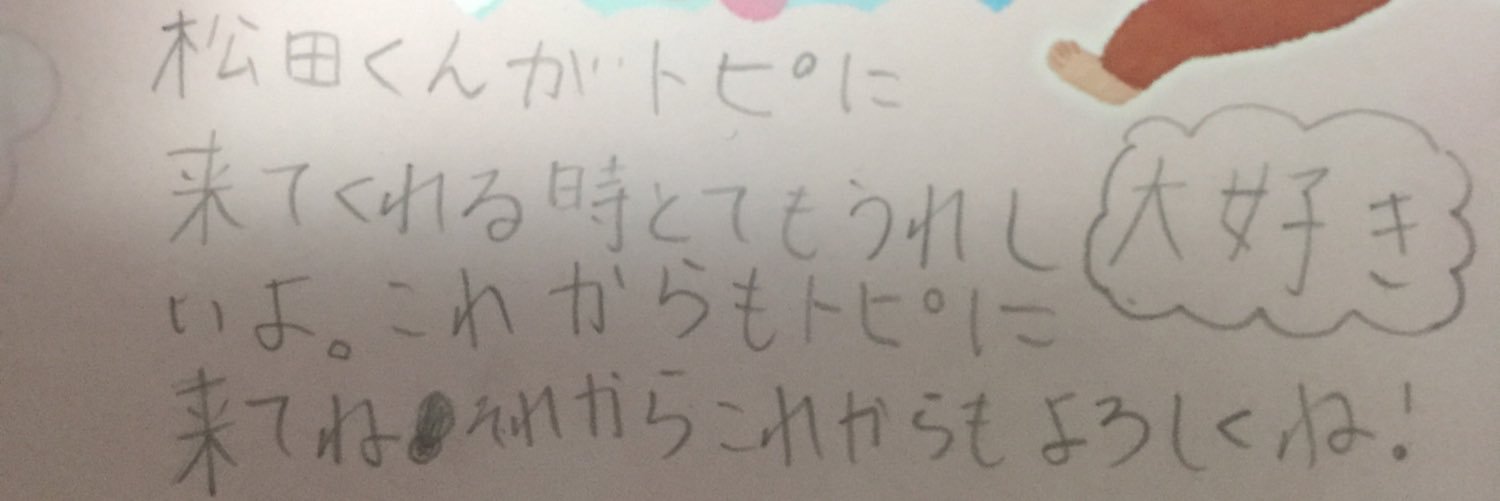 松田くんがトピに
来てくれる時とてもうれし
いよ。これからもトピに
来てね それからこれからもよろしくね!
大好き